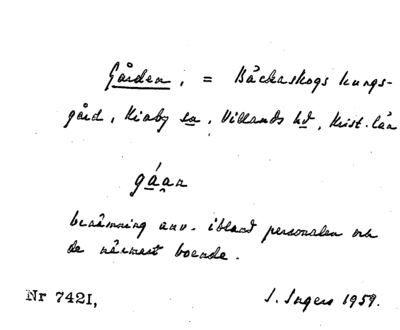 Gården, = Bäckaskogs kungs-
gård, Kiaby sn, Villands hd, Krist. län
gá̱a̯n
benämning anv. ibland personalen och
de närmast boende.
Nr 7421, I. Ingers 1959.